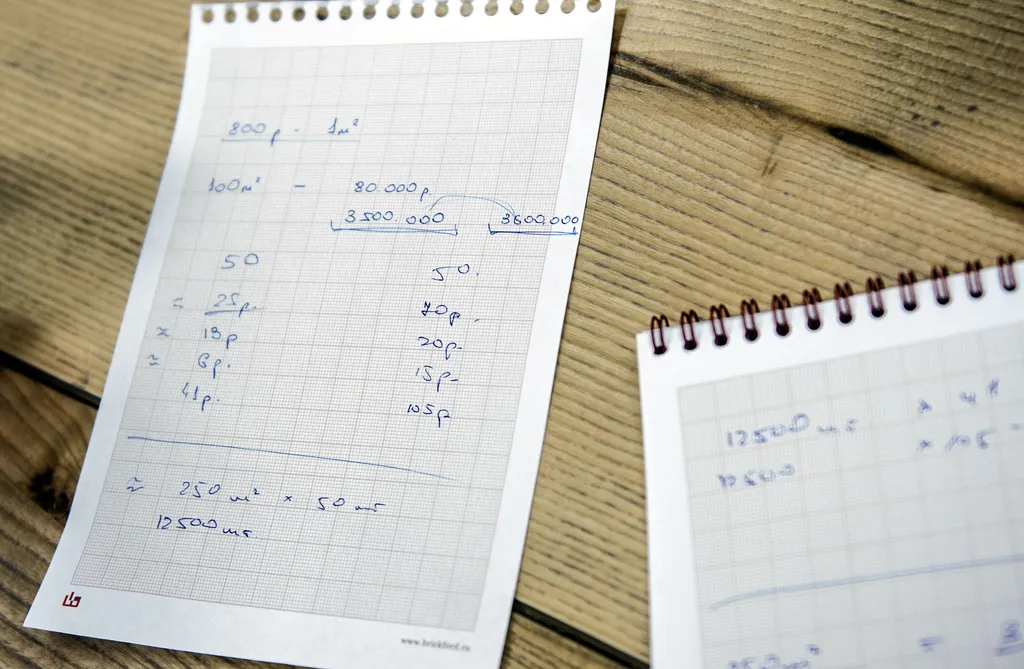 800р - 1м²
100м² - 80.000р.
3500.000 3600.000
50 50.
≈ 25р. 70р.
≈ 19р 20р.
≈ 6р. 15р.
41р. 105р
≈ 250 м² × 50 шт
12500 шт.
www.brickford.ru
12500 шт × 41
12500 × 105
250м² =